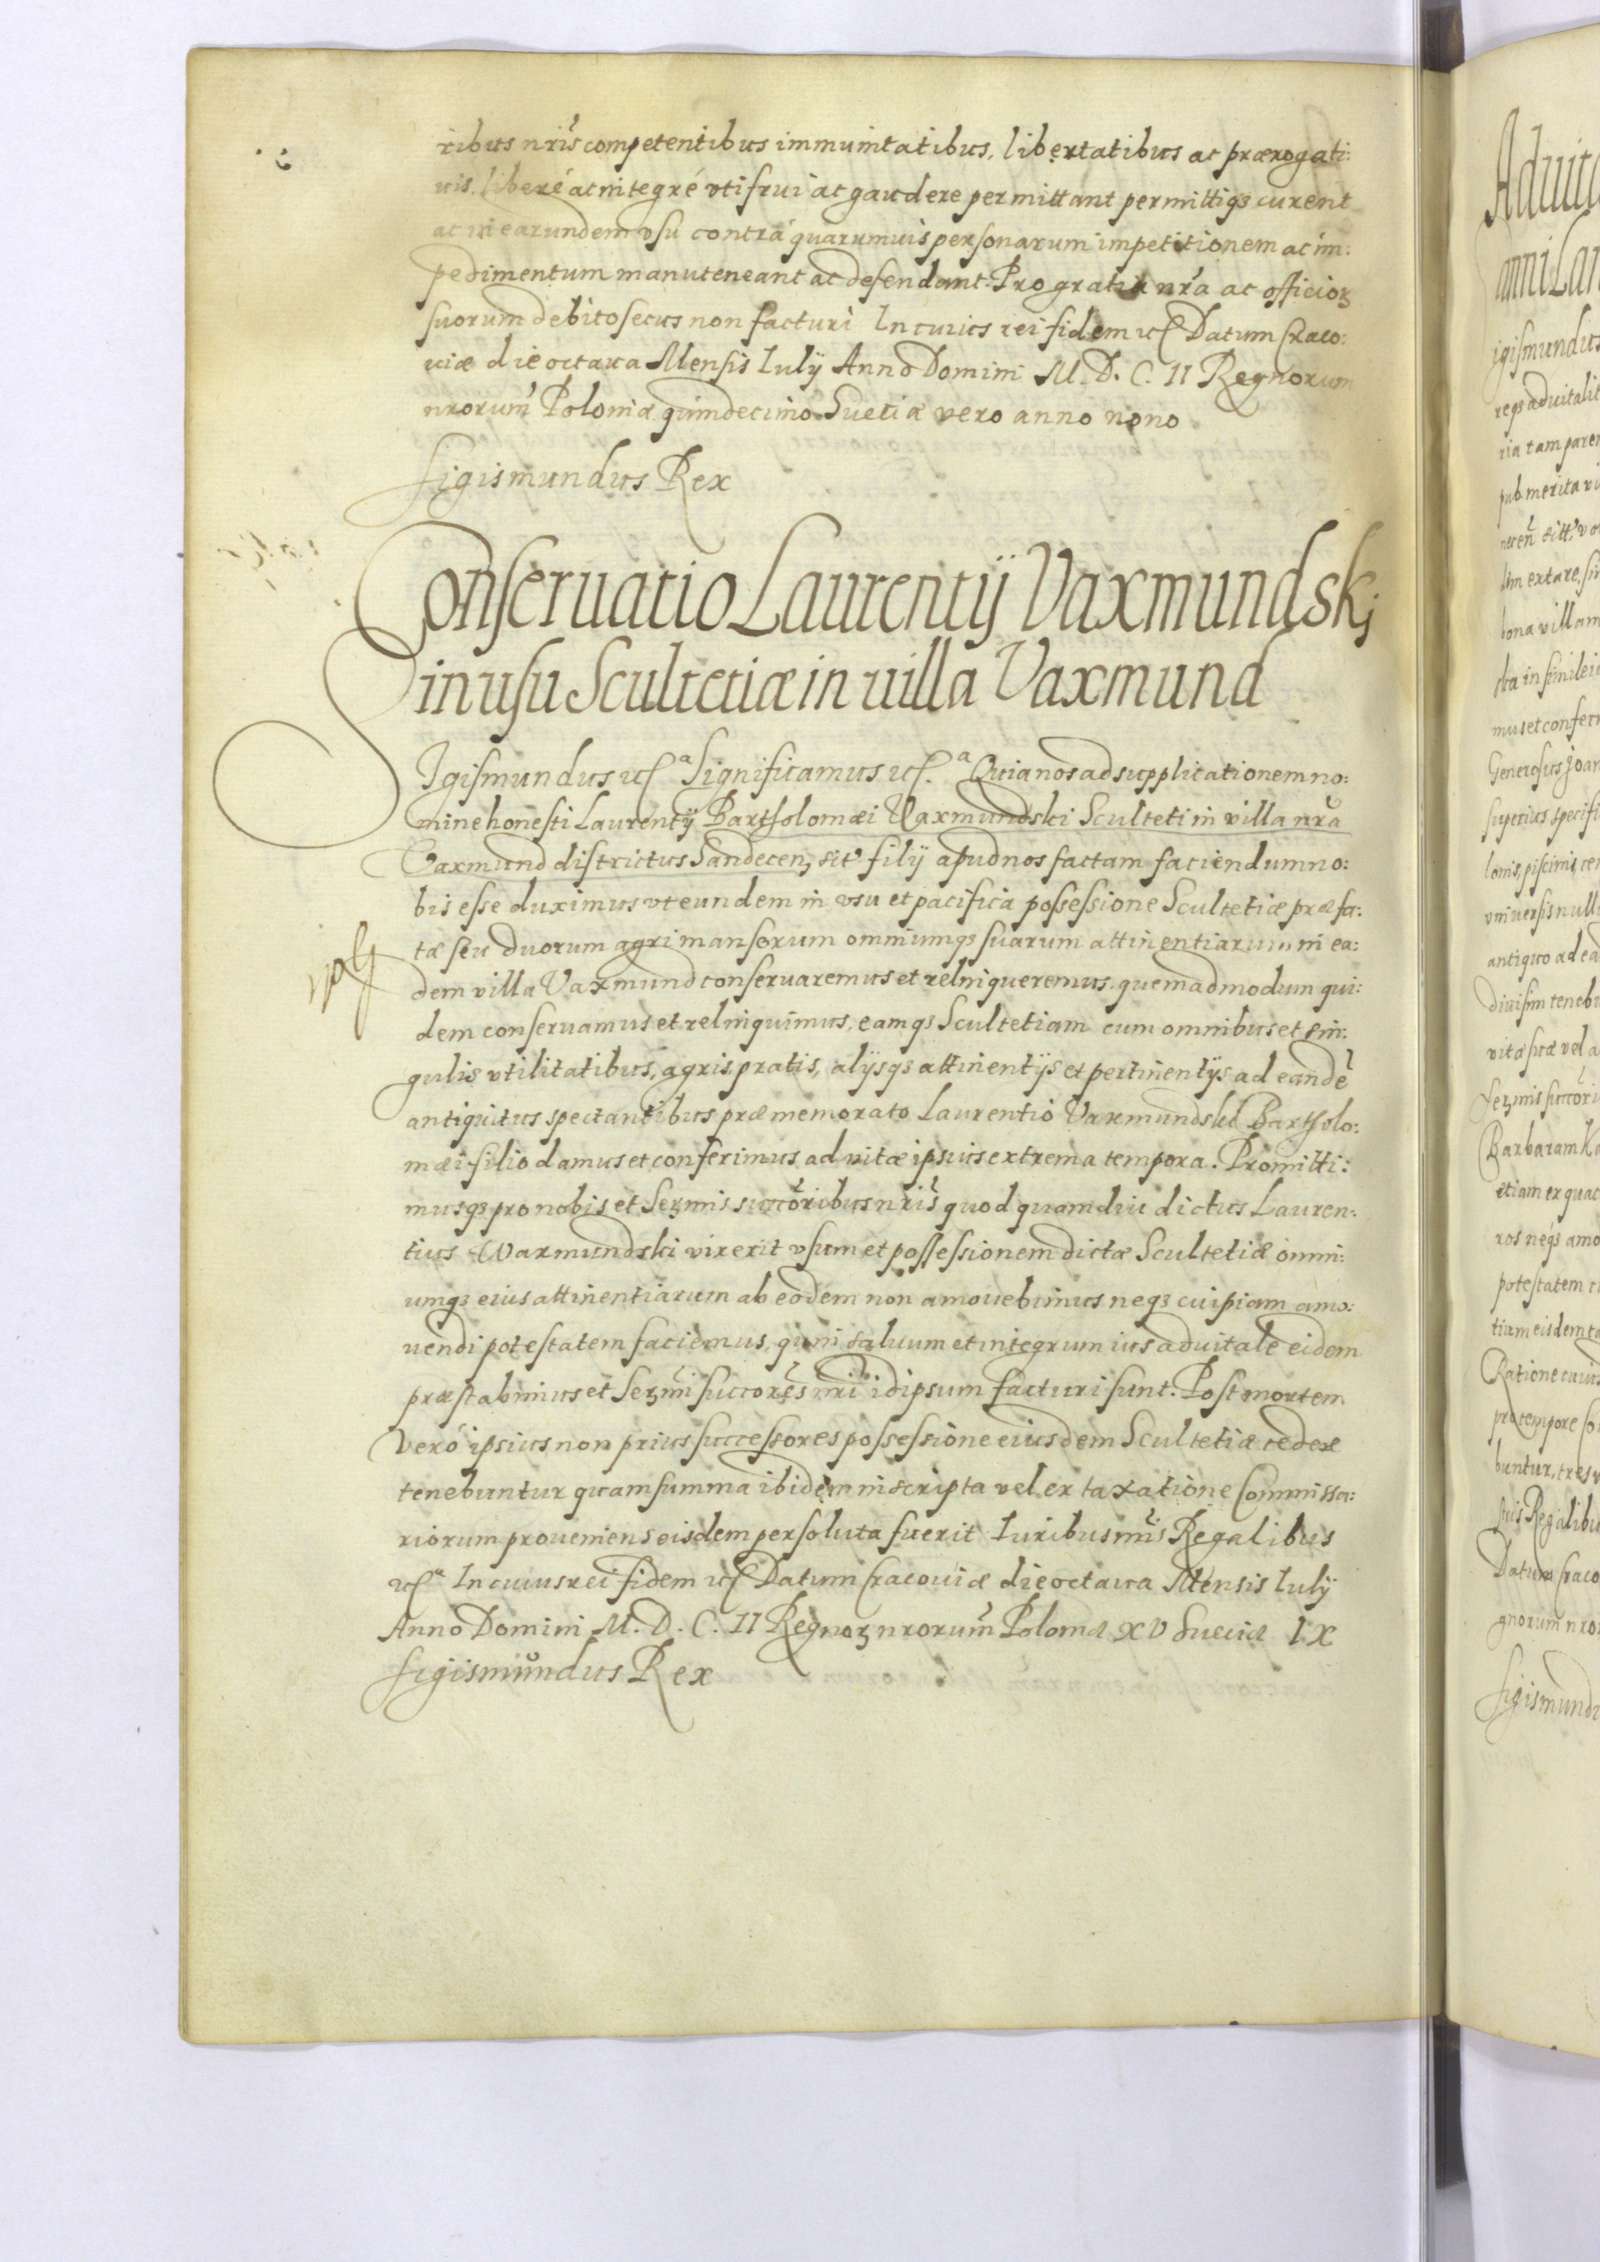 ribus nris competentibus immunitatibus, libertatibus ac prærogati:
uis, liberé ac integré vti frui ac gaudere permittant permittiqз curent
ac in earundem vsu contrá quarumuis personarum impetitionem ac im:
pedimentum manuteneant ac defendant. Pro gratia nra ac officioꝝ
suorum debito secus non facturi In cuius rei fidem etc Datum Craco:
uiæ die octaua Mensis Iulÿ Anno Domini M. D. C. II Regnorum
nrorum Poloniæ quindecimo Suetiæ vero anno nono
Sigismundus Rex
Conseruatio Laurentÿ Vaxmundski
in usu Scultetiæ in uilla Vaxmund
Sigismundus etc.ª Significamus etc.ª Quia nos ad supplicationem no:
mine honesti Laurentÿ Bartholomæi Vaxmundski Sculteti in villa nra
Vaxmund districtus Sandecen, sit filÿ apud nos factam faciendum no:
bis esse duximus vt eundem in vsu et pacifica possessione Scultetiæ præfa:
tæ seu duorum agri mansorum omniumqз suarum attinentiarum in ea:
dem villa Vaxmund conseruaremus et relinqueremus, quemadmodum qui:
dem conseruamus et relinquimus, eamqз Scultetiam cum omnibus et sin:
gulis vtilitatibus, agris, pratis, alÿsqз attinentÿs et pertinentÿs ad eandē
antiquitus spectantibus præmemorato Laurentio Vaxmundski Bartholo:
mæi filio damus et conferimus ad vitæ ipsius extrema tempora. Promitti:
musqз pro nobis et Serмis succoribus nris quod quamdiu dictus Lauren:
tius Waxmundski vixerit vsum et possessionem dictæ Scultetiæ omni:
umqз eius attinentiarum ab eodem non amouebimus neqз cuipiam amo:
uendi potestatem faciemus, quin saluum et integrum ius aduitale eidem
præstabimus et Serмi succores nri idipsum facturi sunt. Post mortem
veró ipsius non prius successores possessione eiusdem Scultetiæ cedere
tenebuntur quam summa ibidem inscripta vel ex taxatione Commissa:
riorum proueniens eisdem persoluta fuerit Iuribus nris Regalibus
etc.ª In cuius rei fidem etc Datum Cracouiæ die octaua Mensis Iulÿ
Anno Domini M. D. C. II Regnoꝝ nrorum Poloniæ XV Sueciæ IX
Sigismundus Rex